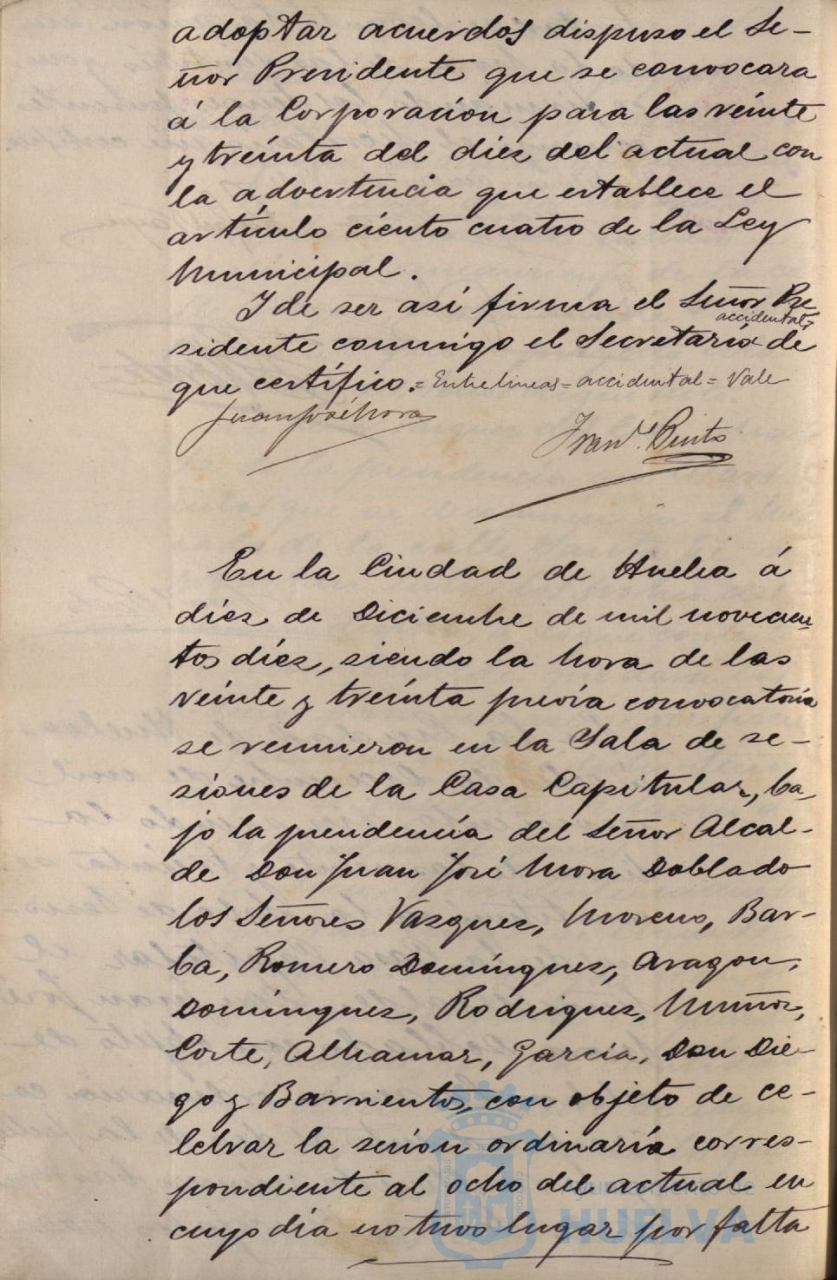 adoptar acuerdos dispuso el Se-
ñor Presidente que se convocara
á la Corporación para las veinte
y treinta del diez del actual con
la advertencia que establece el
artículo ciento cuatro de la Ley
Municipal.
Y de ser así firma el Señor Pre
accidental
sidente conmigo el Secretario de
que certifico. = Entrelineas = accidental = Vale
Juan José Mora
Franco. Pinto
En la Ciudad de Huelva á
diez de Diciembre de mil novecien
tos diez, siendo la hora de las
veinte y treinta previa convocatoria
se reunieron en la Sala de se-
siones de la Casa Capitular, ba-
jo la presidencia del Señor Alcal-
de Don Juan José Mora Doblado
los Señores Vazquez, Moreno, Bar-
ba, Romero Domínguez, Aragon,
Domínguez, Rodriguez, Muñoz,
Corte, Alhamar, García, Don Die-
go y Barrientos, con objeto de ce-
lebrar la sesión ordinaria corres-
pondiente al ocho del actual en
cuyo día no tuvo lugar por falta
HUELVA